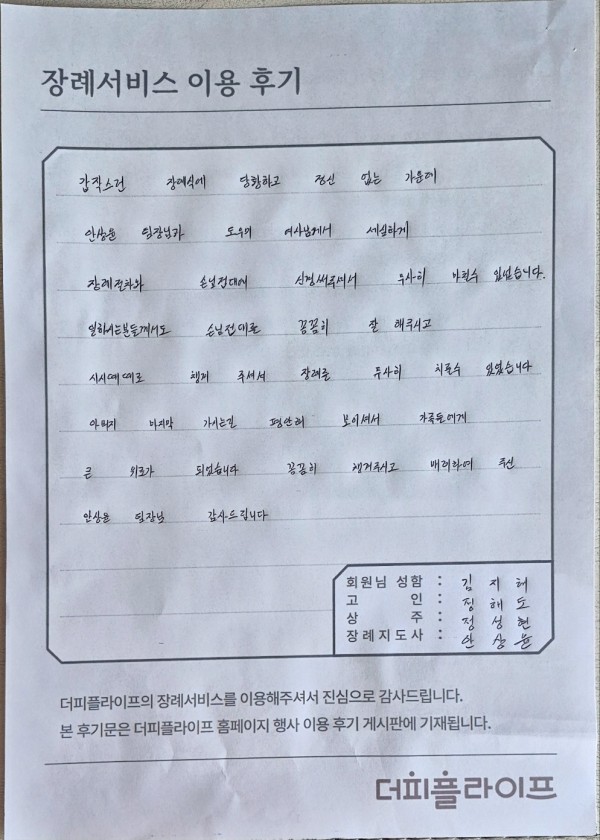 장례서비스 이용 후기
갑작스런 장례식에 당황하고 정신 없는 가운데
안상윤 팀장님과 도우미 여사님께서 세심하게
장례절차와 손님접대에 신경써주셔서 무사히 마칠수 있었습니다.
일하시는분들께서도 손님접대를 꼼꼼히 잘 해주시고
시시때때로 챙겨 주셔서 장례를 무사히 치룰수 있었습니다
아버지 마지막 가시는길 평안히 보이셔서 가족들에게
큰 위로가 되었습니다 꼼꼼히 챙겨주시고 배려하여 주신
안상윤 팀장님 감사드립니다
회원님 성함 : 김지혜
고 인 : 정해도
상 주 : 정성현
장례지도사 : 안상윤
더피플라이프의 장례서비스를 이용해주셔서 진심으로 감사드립니다.
본 후기문은 더피플라이프 홈페이지 행사 이용 후기 게시판에 기재됩니다.
더피플라이프